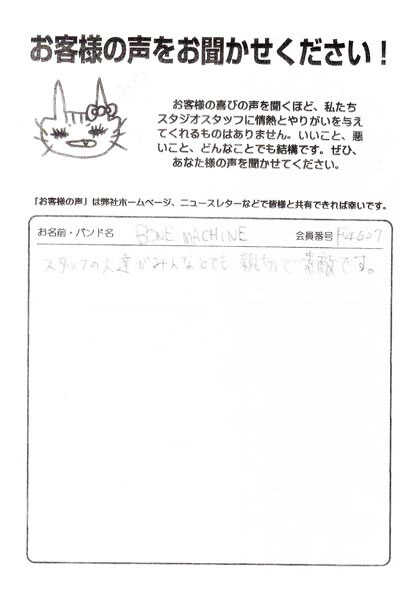 お客様の声をお聞かせください！
お客様の喜びの声を聞くほど、私たち
スタジオスタッフに情熱とやりがいを与え
てくれるものはありません。いいこと、悪
いこと、どんなことでも結構です。ぜひ、
あなた様の声を聞かせてください。
「お客様の声」は弊社ホームページ、ニュースレターなどで皆様と共有できれば幸いです。
お名前・バンド名 BONE MACHINE 会員番号
スタッフの人達がみんなとても 親切で 素敵です。